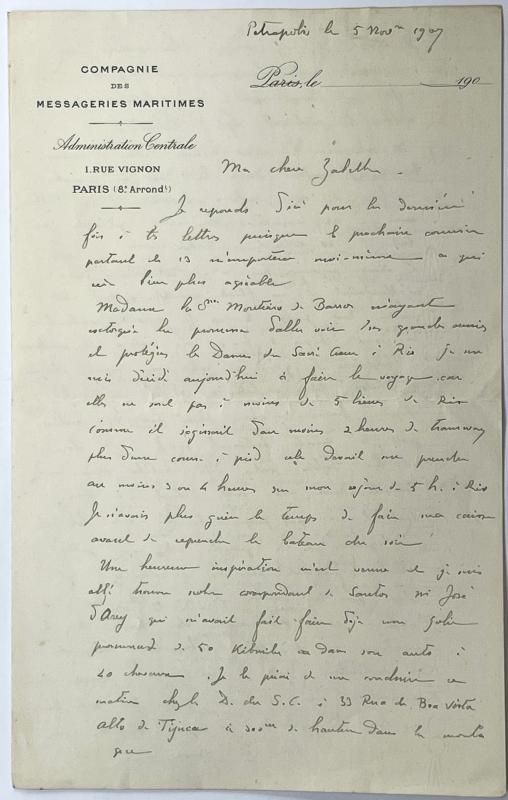 Petropolis le 5 Novre 1907
COMPAGNIE
DES
MESSAGERIES MARITIMES
Paris, le 190
Administration Centrale
1. RUE VIGNON
PARIS (8e Arrondt)
Ma chere
Je reponds d'ici pour la dernière
fois à tes lettres puisque le prochain courrier
partant le 13 m'emportera moi-même ce qui
m'est bien plus agréable
Madame la Monteiro de Barros m'ayant
la promesse d'aller voir ses grandes amies
et protégées les Dames du Sacré Coeur à Rio je me
suis décidé aujourd'hui à faire le voyage car
elles ne sont pas à moins de 5 lieues de Rio
Comme il s'agissait d'au moins 2 heures de tramway
plus d'une course à pied cela devait me prendre
au moins 3 ou 4 heures sur mon séjour de 5 h. à Rio
Je n'avais plus guère le temps de faire ma
avant de reprendre le bateau du soir
Une heureuse inspiration m'est venue et je suis
allé trouver notre correspondant de Santos mr José
qui m'avait fait faire déjà une jolie
promenade de 50 Kilomètres dans son auto à
40 chevaux. Je le priai de me conduire ce
matin chez les D. du S.C. à 33 Rua da Boa Vista
Alto da Tijuca à 300m de hauteur dans la monta
gne